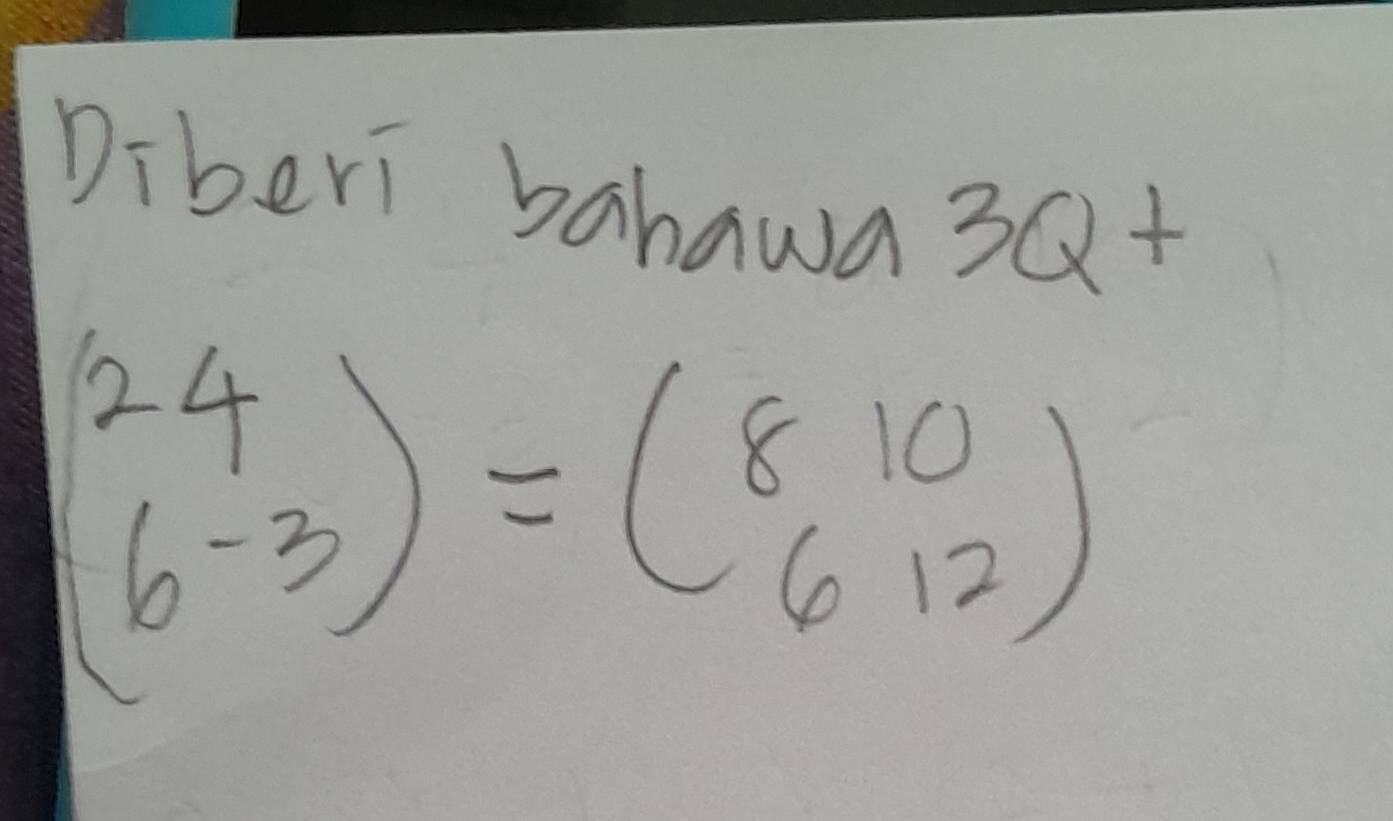 Diberi bahawa 3Q +
(2 4
6 -3) = (8 10
6 12)